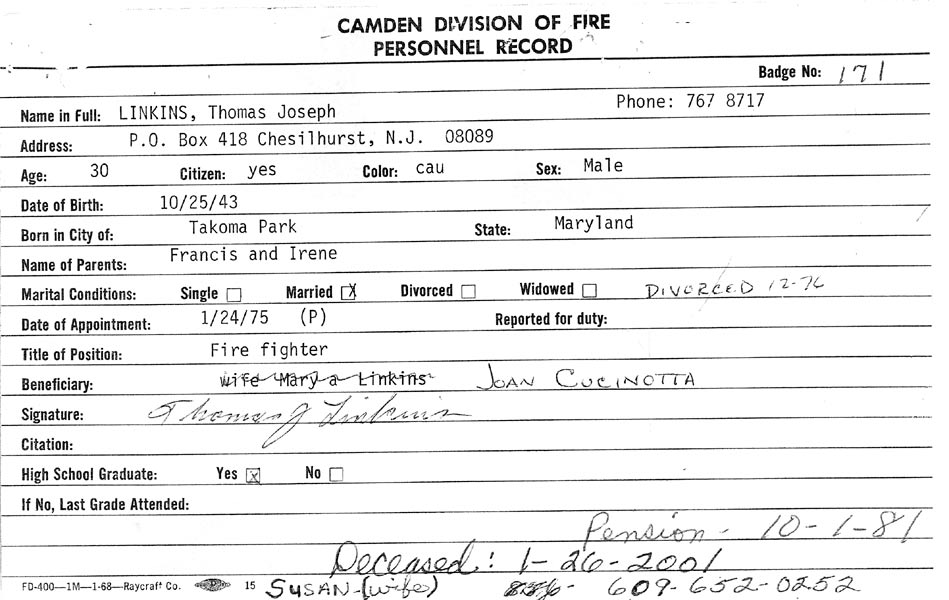 CAMDEN DIVISION OF FIRE
PERSONNEL RECORD
Badge No: 171
Name in Full: LINKINS, Thomas Joseph Phone: 767 8717
Address: P.O. Box 418 Chesilhurst, N.J. 08089
Age: 30 Citizen: yes Color: cau Sex: Male
Date of Birth: 10/25/43
Born in City of: Takoma Park State: Maryland
Name of Parents: Francis and Irene
Marital Conditions: Single Married X Divorced Widowed DIVORCED 12-76
Date of Appointment: 1/24/75 (P) Reported for duty:
Title of Position: Fire fighter
Beneficiary: wife Mary a Linkins JOAN CUCINOTTA
Signature: Thomas J Linkins
Citation:
High School Graduate: Yes x No
If No, Last Grade Attended:
Pension - 10-1-81
Deceased: 1-26-2001
FD-400—1M—1-68—Raycraft Co. 15 SUSAN (wife) 609-652-0252